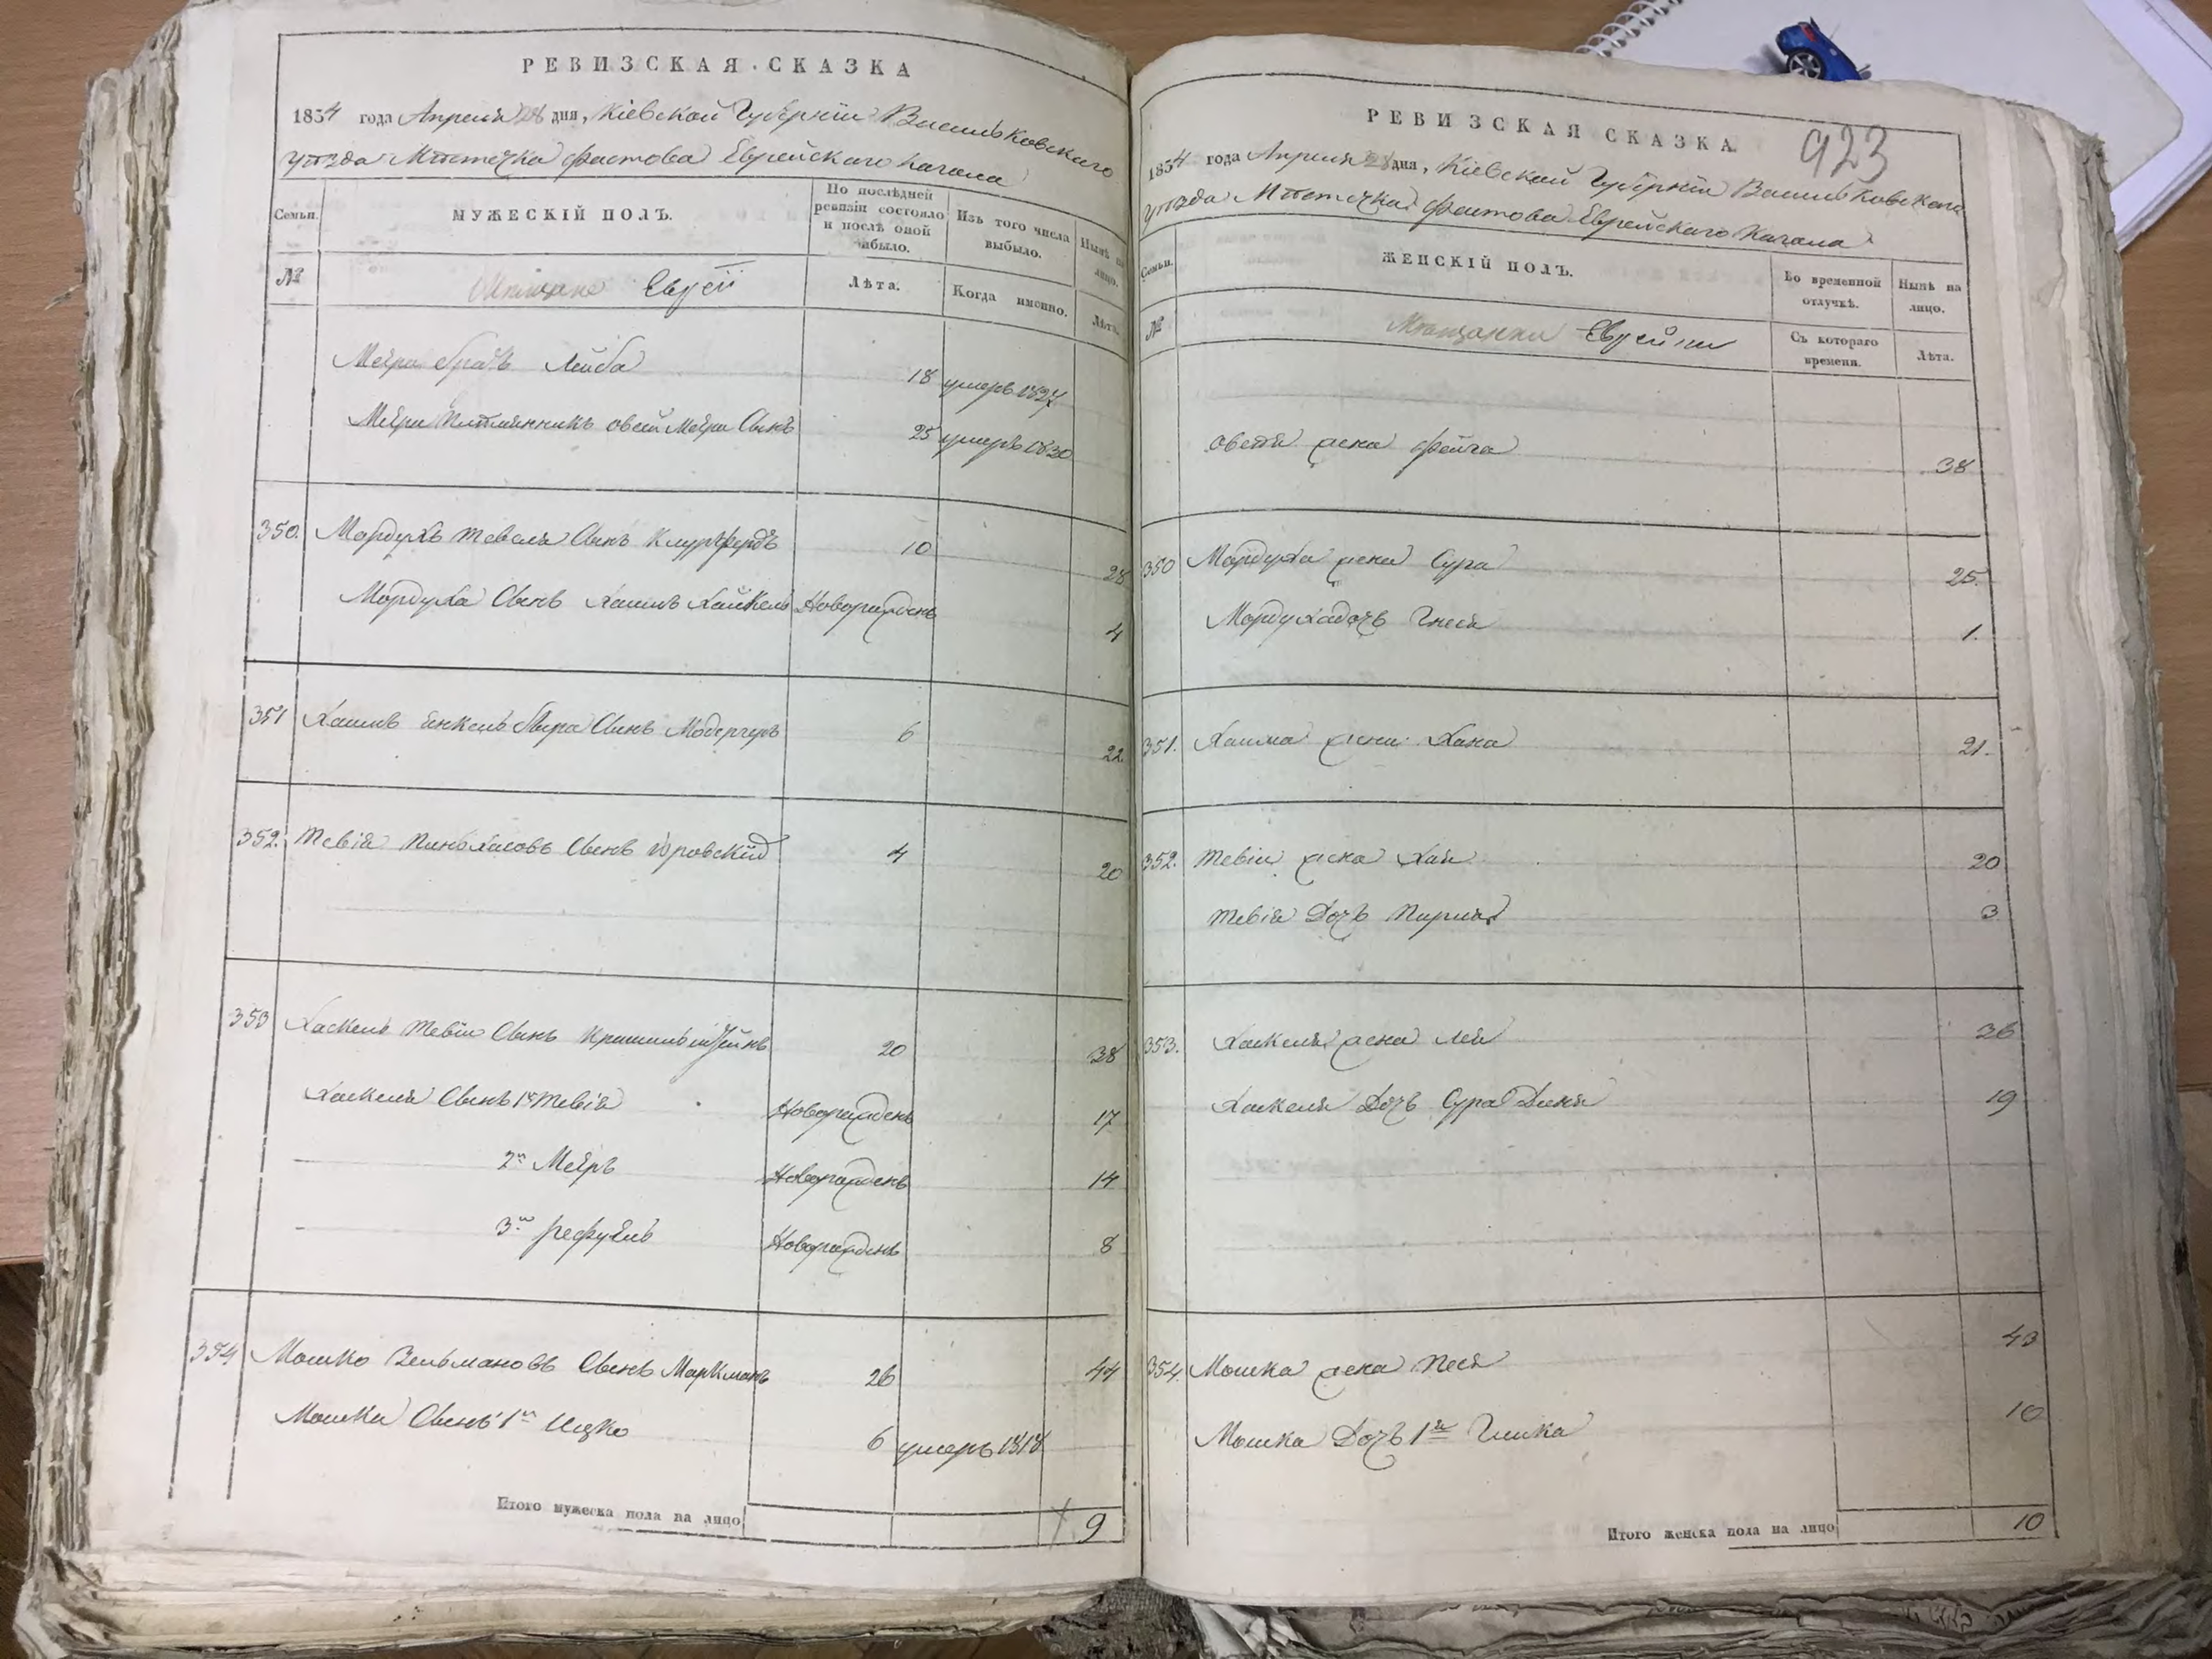 РЕВИЗСКАЯ СКАЗКА
1854 года Апреля 28 дня, Кіевской Губерніи Васильковского
уѣзда Мѣстечка Фастова Еврейского Кагала
Семьи.
МУЖЕСКІЙ ПОЛЪ.
По послѣдней ревизіи состояло и послѣ оной прибыло.
Изъ того числа выбыло.
Нынѣ на лицо.
№
Мѣщане Евреи
Лѣта.
Когда именно.
Лѣта.
Меера братъ Лейба 18 умеръ 1837
Меера Племянникъ Овсей Меера Сынъ 25 умеръ 1830
350. Мордухъ Тевеля Сынъ 10 28
Мордуха Сынъ Хаимъ Хайкель Новорожденъ 4
351 Хаимъ Енкель Сынъ 6 22.
352. Тевія Пиньхасовъ Сынъ Юровскій 4 20
353 Хаскель Тевіи Сынъ 20 38
Хаскеля Сынъ 1й Тевія Новорожденъ 17
2й Мееръ Новорожденъ 14
3й Рефуель Новорожденъ 8
354 Мошко Зельмановъ Сынъ Маркманъ 26 44
Мошки Сынъ 1й Ицко 6 умеръ 1818
Итого мужеска пола на лицо 9
923
РЕВИЗСКАЯ СКАЗКА
1854 года Апреля 28 дня, Кіевской Губерніи Васильковского
уѣзда Мѣстечка Фастова Еврейского Кагала
Семьи.
ЖЕНСКІЙ ПОЛЪ.
Во временной отлучкѣ.
Нынѣ на лицо.
№
Мѣщанки Еврейки
Съ котораго времени.
Лѣта.
Овсея жена Фейга 38
350 Мордуха жена Сура 25.
Мордуха дочь Гнеся 1.
351. Хаима жена Хана 21.
352. Тевіи жена Хая 20
Тевія Дочь 3
353. Хаскеля жена Лея 36
Хаскеля Дочь Сура Двеня 19
354. Мошка жена Песя 43
Мошка Дочь 1я 10
Итого женска пола на лицо 10